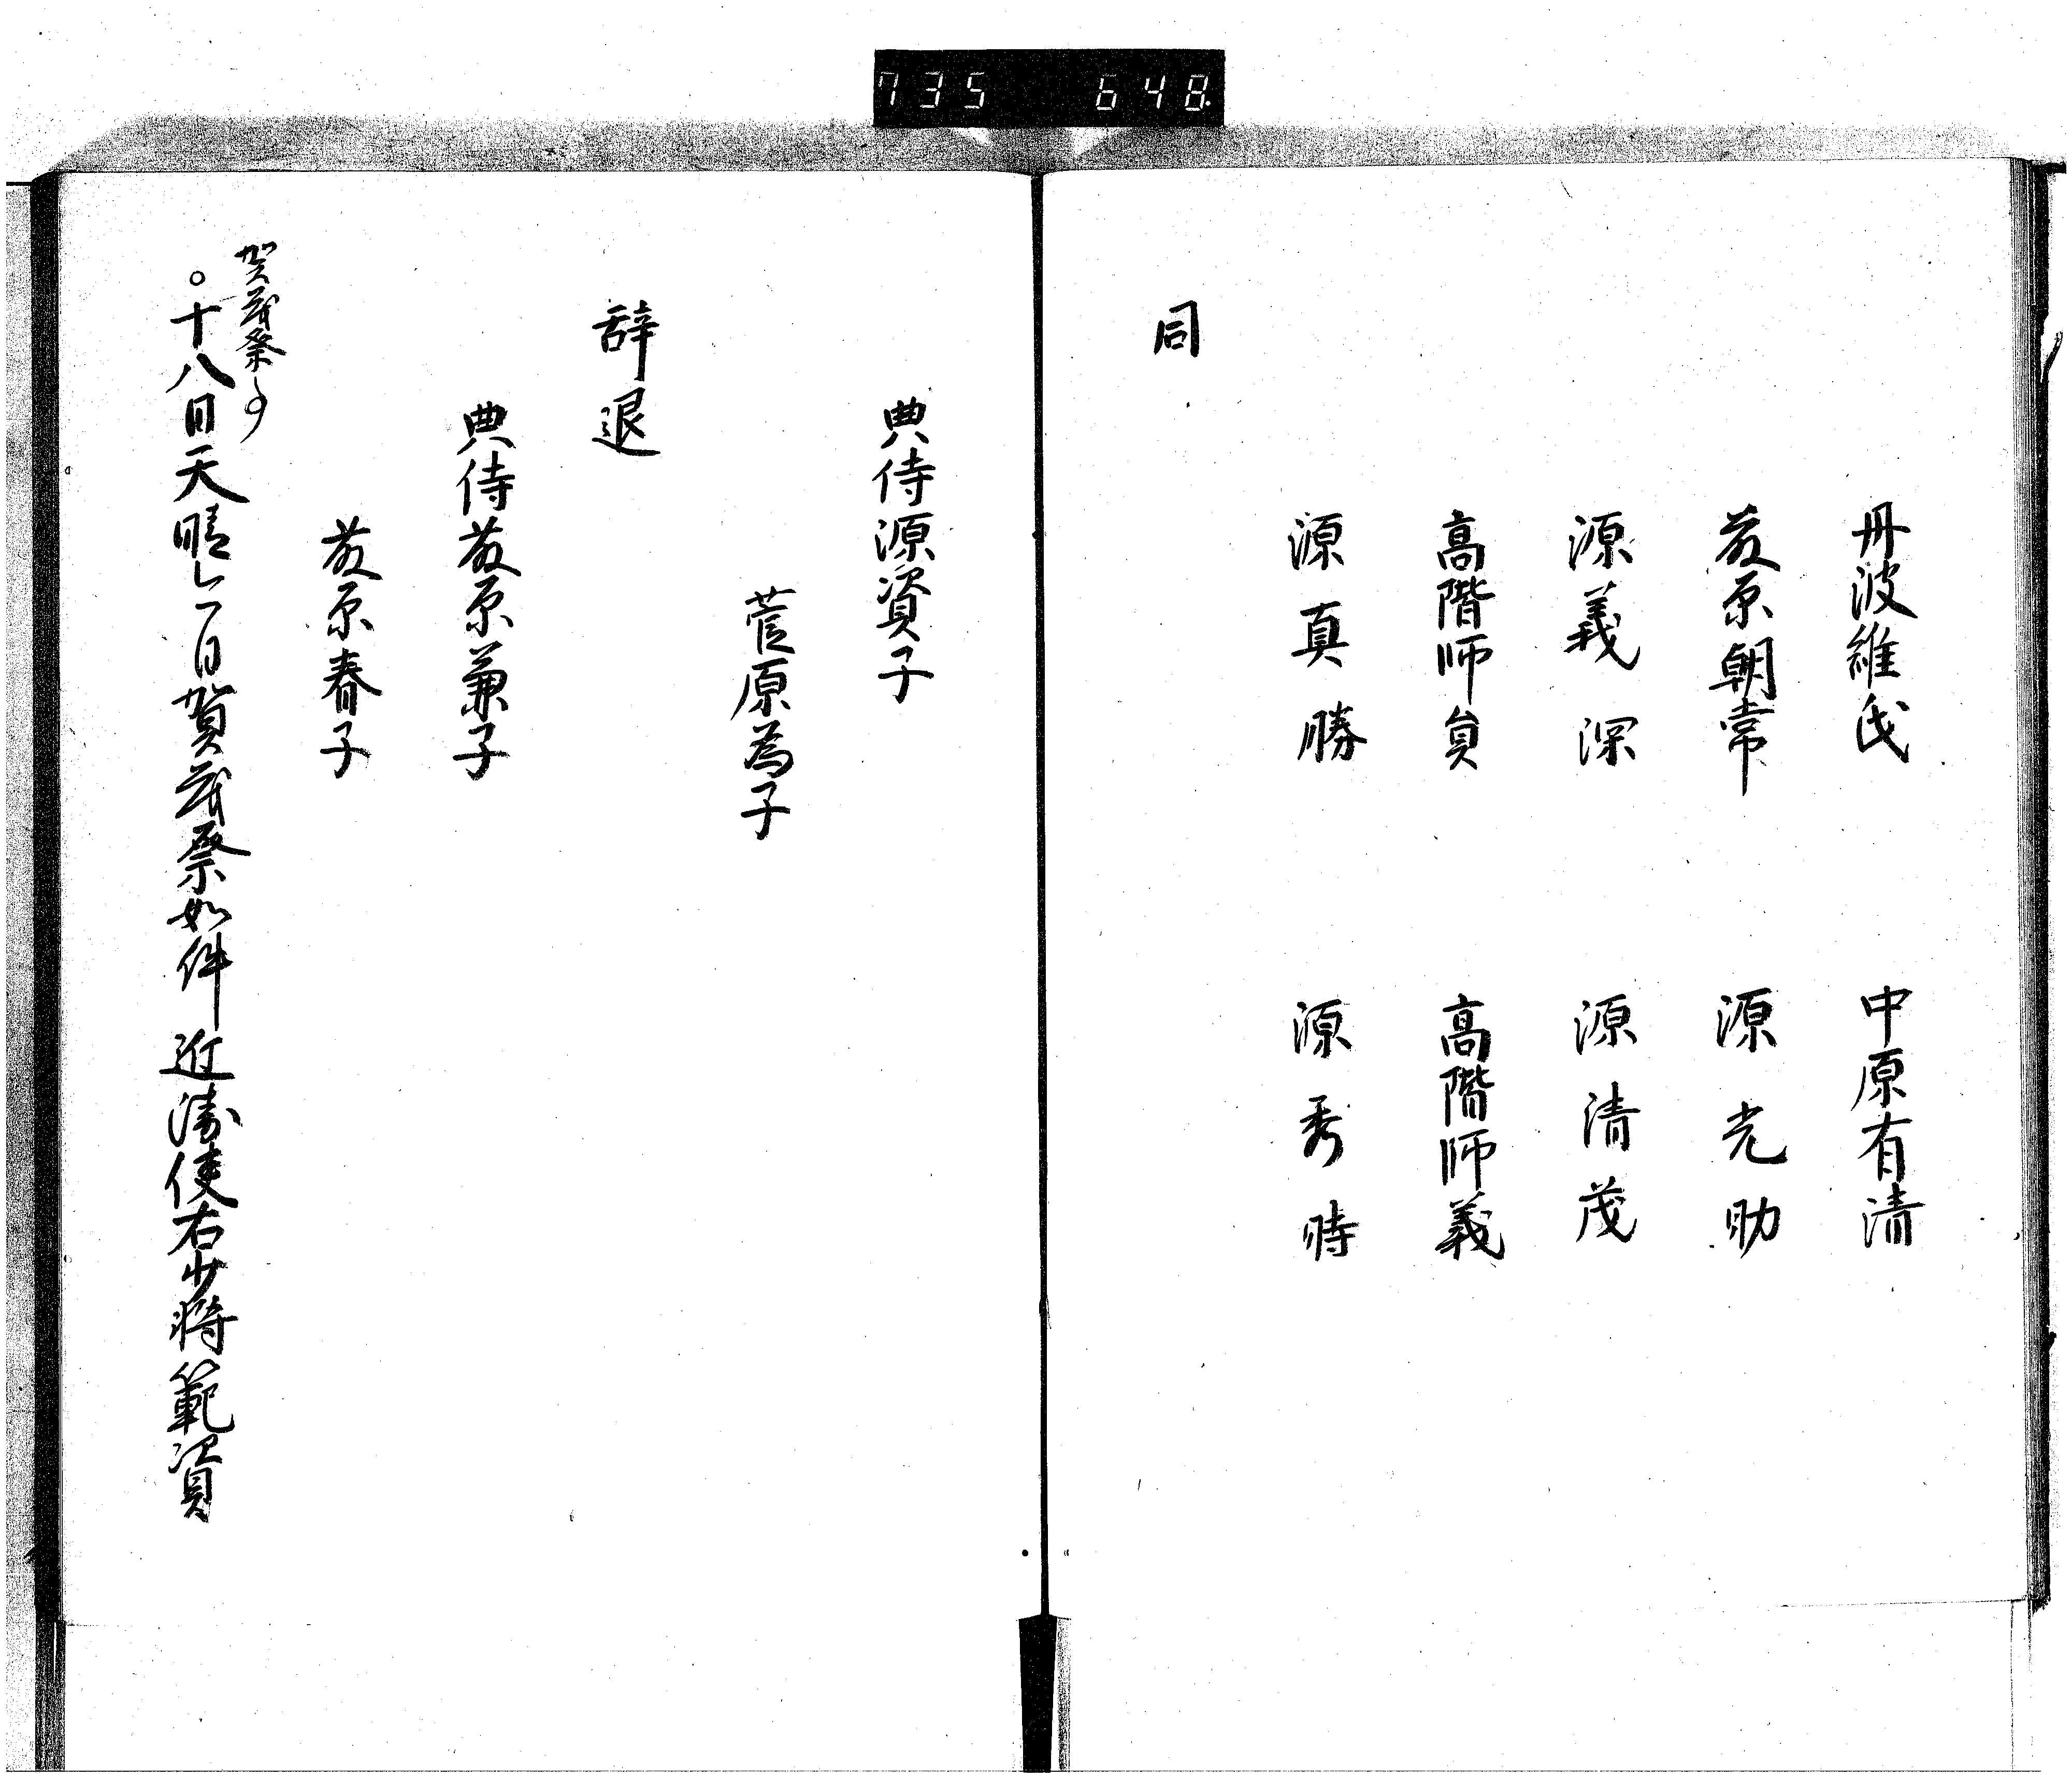 735 648
丹波維氏 中原有清
藤原朝常 源光助
源義深 源清茂
高階師員 高階師義
源真勝 源秀時
同
典侍源資子
菅原為子
辞退
典侍藤原兼子
藤原春子
賀茂祭事
○十八日天晴今日賀茂祭如件近衛使右少将範資